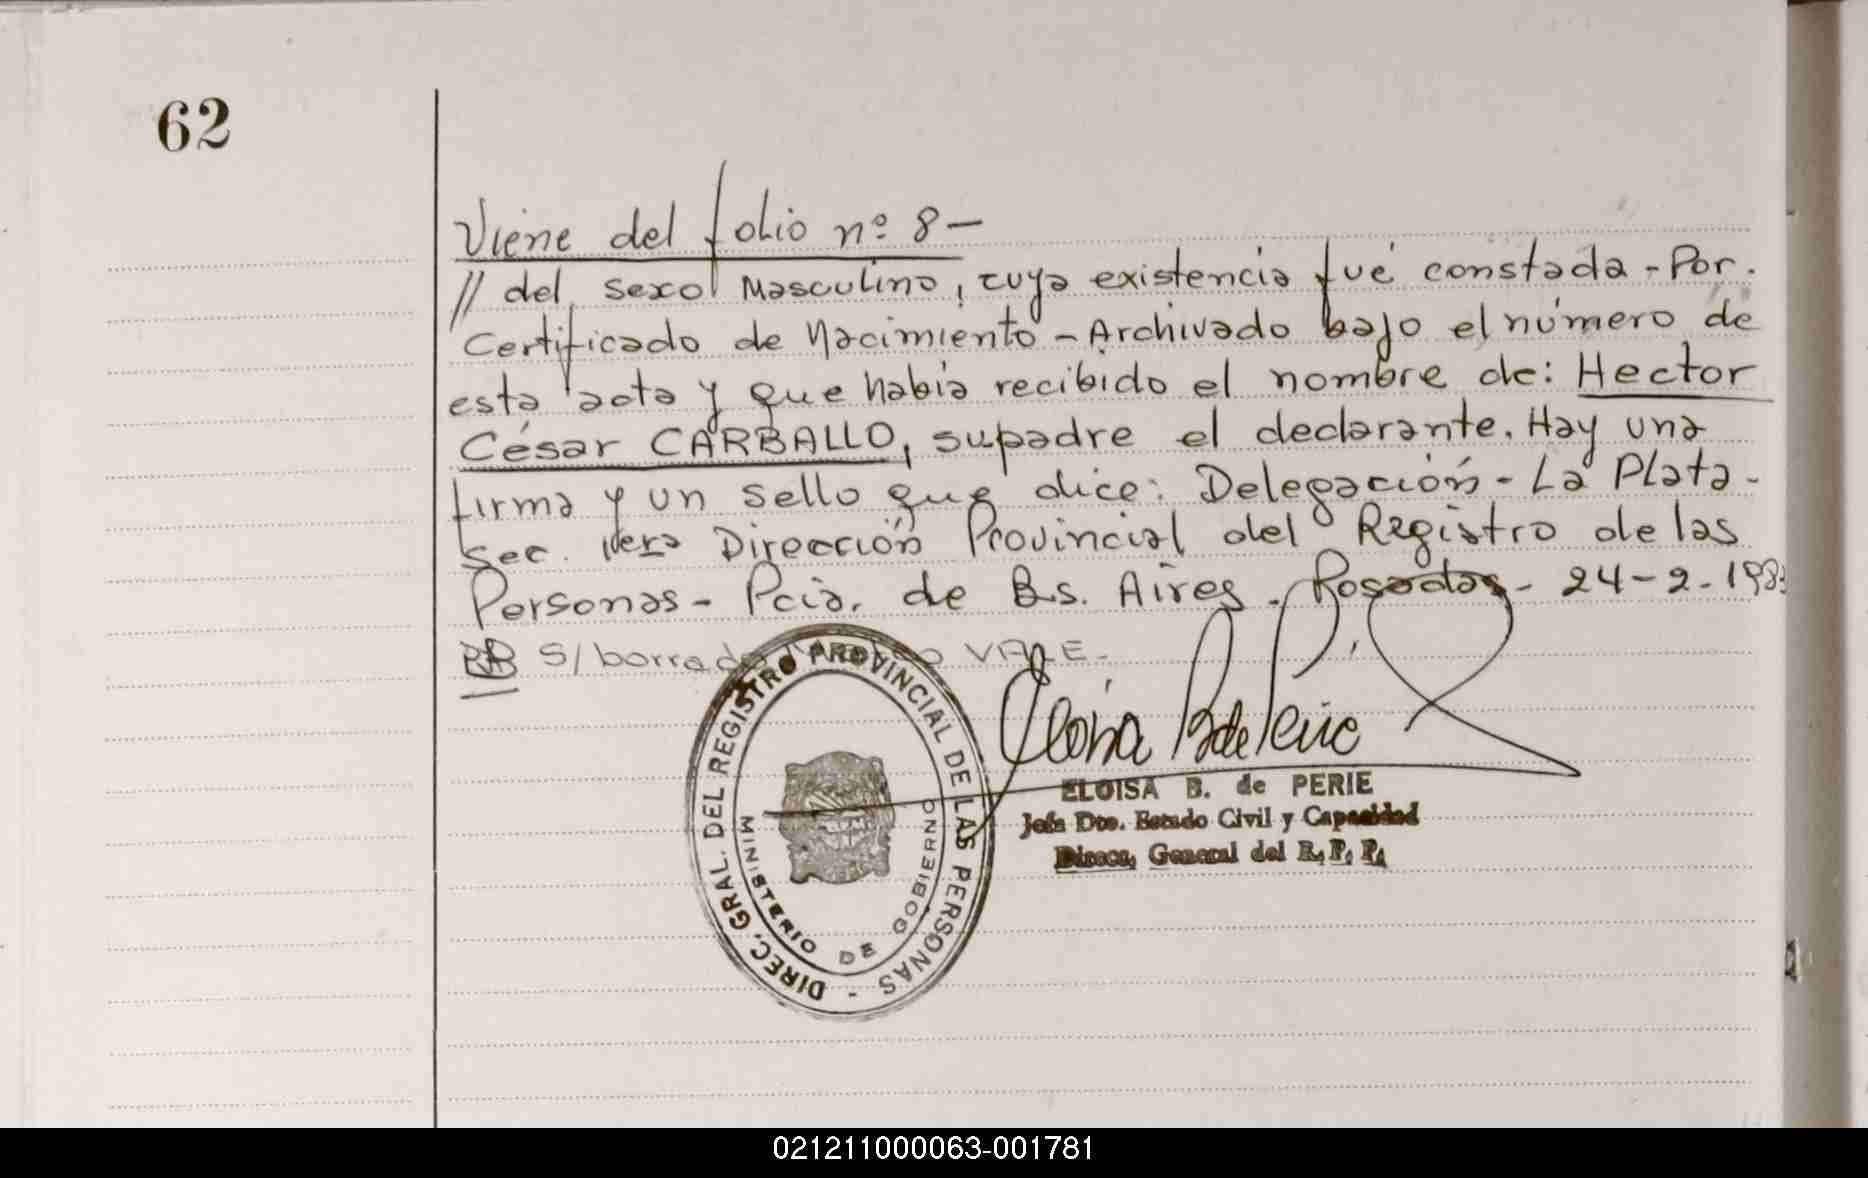 62
Viene del folio nº 8 —
// del sexo Masculino, cuya existencia fué constada - Por.
Certificado de Nacimiento - Archivado bajo el número de
esta acta y que habia recibido el nombre de: Hector
César CARBALLO, su padre el declarante. Hay una
firma y un sello que dice: Delegación - La Plata -
Sec. 1era Dirección Provincial del Registro de las
Personas - Pcia. de Bs. Aires - Posadas - 24-2-198
S/borrado VALE -
DIREC. GRAL. DEL REGISTRO PROVINCIAL DE LAS PERSONAS -
MINISTERIO DE GOBIERNO
Eloisa B de Perie
ELOISA B. de PERIE
Jefa Dto. Estado Civil y Capacidad
Direcc. General del R. P. P.
021211000063-001781